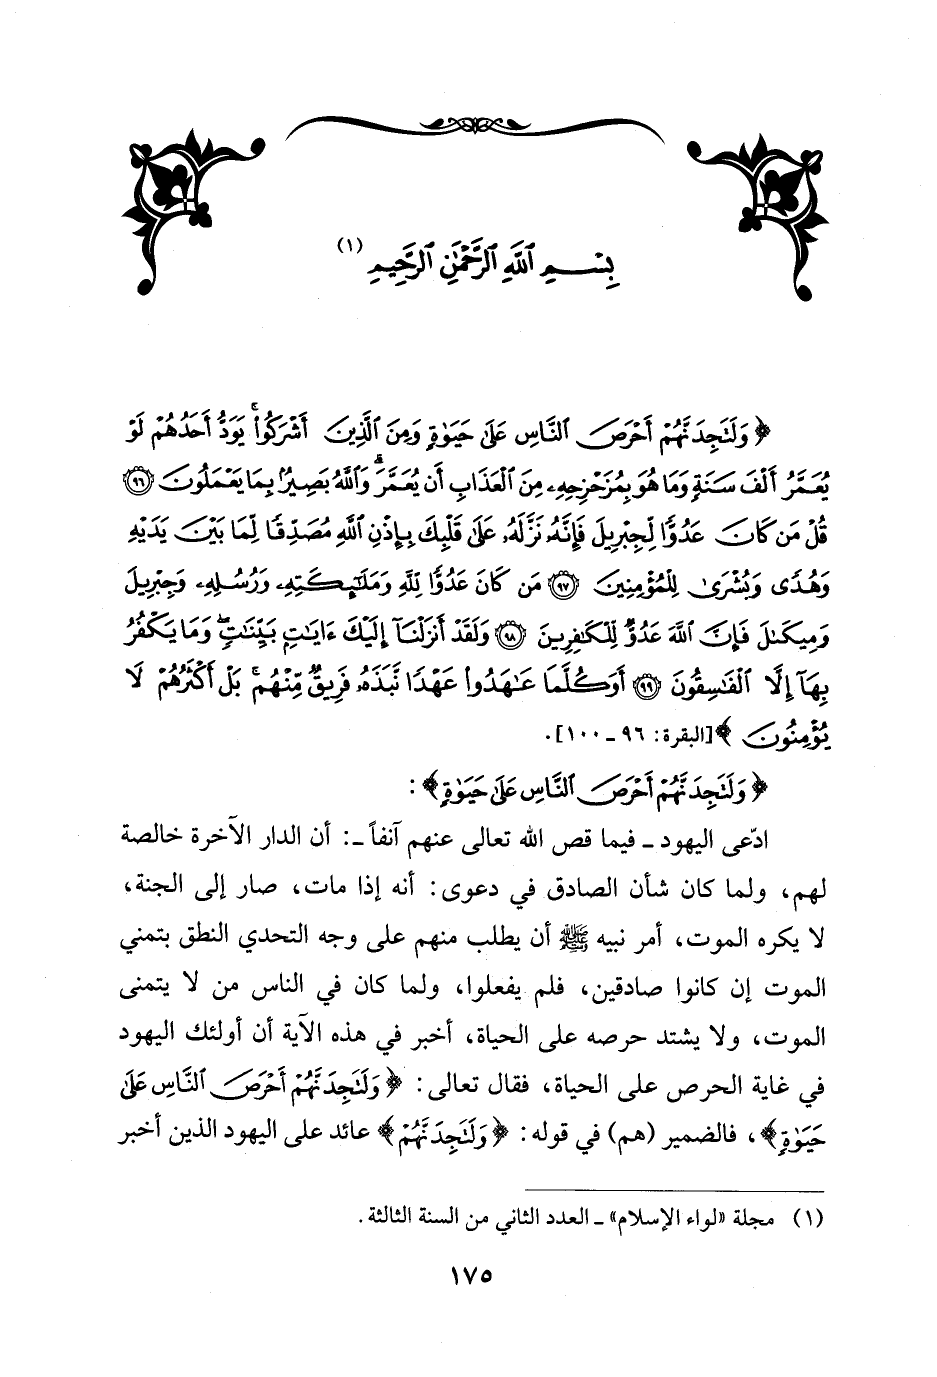 بِسْمِ ٱللَّهِ ٱلرَّحْمَٰنِ ٱلرَّحِيمِ (١)
﴿ وَلَتَجِدَنَّهُمْ أَحْرَصَ ٱلنَّاسِ عَلَىٰ حَيَوٰةٍ وَمِنَ ٱلَّذِينَ أَشْرَكُوا۟ ۚ يَوَدُّ أَحَدُهُمْ لَوْ
يُعَمَّرُ أَلْفَ سَنَةٍ وَمَا هُوَ بِمُزَحْزِحِهِۦ مِنَ ٱلْعَذَابِ أَن يُعَمَّرَ ۗ وَٱللَّهُ بَصِيرٌۢ بِمَا يَعْمَلُونَ ﴿٩٦﴾
قُلْ مَن كَانَ عَدُوًّا لِّجِبْرِيلَ فَإِنَّهُۥ نَزَّلَهُۥ عَلَىٰ قَلْبِكَ بِإِذْنِ ٱللَّهِ مُصَدِّقًا لِّمَا بَيْنَ يَدَيْهِ
وَهُدًى وَبُشْرَىٰ لِلْمُؤْمِنِينَ ﴿٩٧﴾ مَن كَانَ عَدُوًّا لِّلَّهِ وَمَلَٰٓئِكَتِهِۦ وَرُسُلِهِۦ وَجِبْرِيلَ
وَمِيكَىٰلَ فَإِنَّ ٱللَّهَ عَدُوٌّ لِّلْكَٰفِرِينَ ﴿٩٨﴾ وَلَقَدْ أَنزَلْنَآ إِلَيْكَ ءَايَٰتٍۭ بَيِّنَٰتٍ ۖ وَمَا يَكْفُرُ
بِهَآ إِلَّا ٱلْفَٰسِقُونَ ﴿٩٩﴾ أَوَكُلَّمَا عَٰهَدُوا۟ عَهْدًا نَّبَذَهُۥ فَرِيقٌ مِّنْهُم ۚ بَلْ أَكْثَرُهُمْ لَا
يُؤْمِنُونَ ﴾ [البقرة: ٩٦ ـ ١٠٠].
﴿ وَلَتَجِدَنَّهُمْ أَحْرَصَ ٱلنَّاسِ عَلَىٰ حَيَوٰةٍ ﴾ :
ادّعى اليهود ـ فيما قص الله تعالى عنهم آنفاً ـ: أن الدار الآخرة خالصة
لهم، ولما كان شأن الصادق في دعوى: أنه إذا مات، صار إلى الجنة،
لا يكره الموت، أمر نبيه ﷺ أن يطلب منهم على وجه التحدي النطق بتمني
الموت إن كانوا صادقين، فلم يفعلوا، ولما كان في الناس من لا يتمنى
الموت، ولا يشتد حرصه على الحياة، أخبر في هذه الآية أن أولئك اليهود
في غاية الحرص على الحياة، فقال تعالى: ﴿ وَلَتَجِدَنَّهُمْ أَحْرَصَ ٱلنَّاسِ عَلَىٰ
حَيَوٰةٍ ﴾، فالضمير (هم) في قوله: ﴿ وَلَتَجِدَنَّهُمْ ﴾ عائد على اليهود الذين أخبر
(١) مجلة «لواء الإسلام» ـ العدد الثاني من السنة الثالثة.
١٧٥